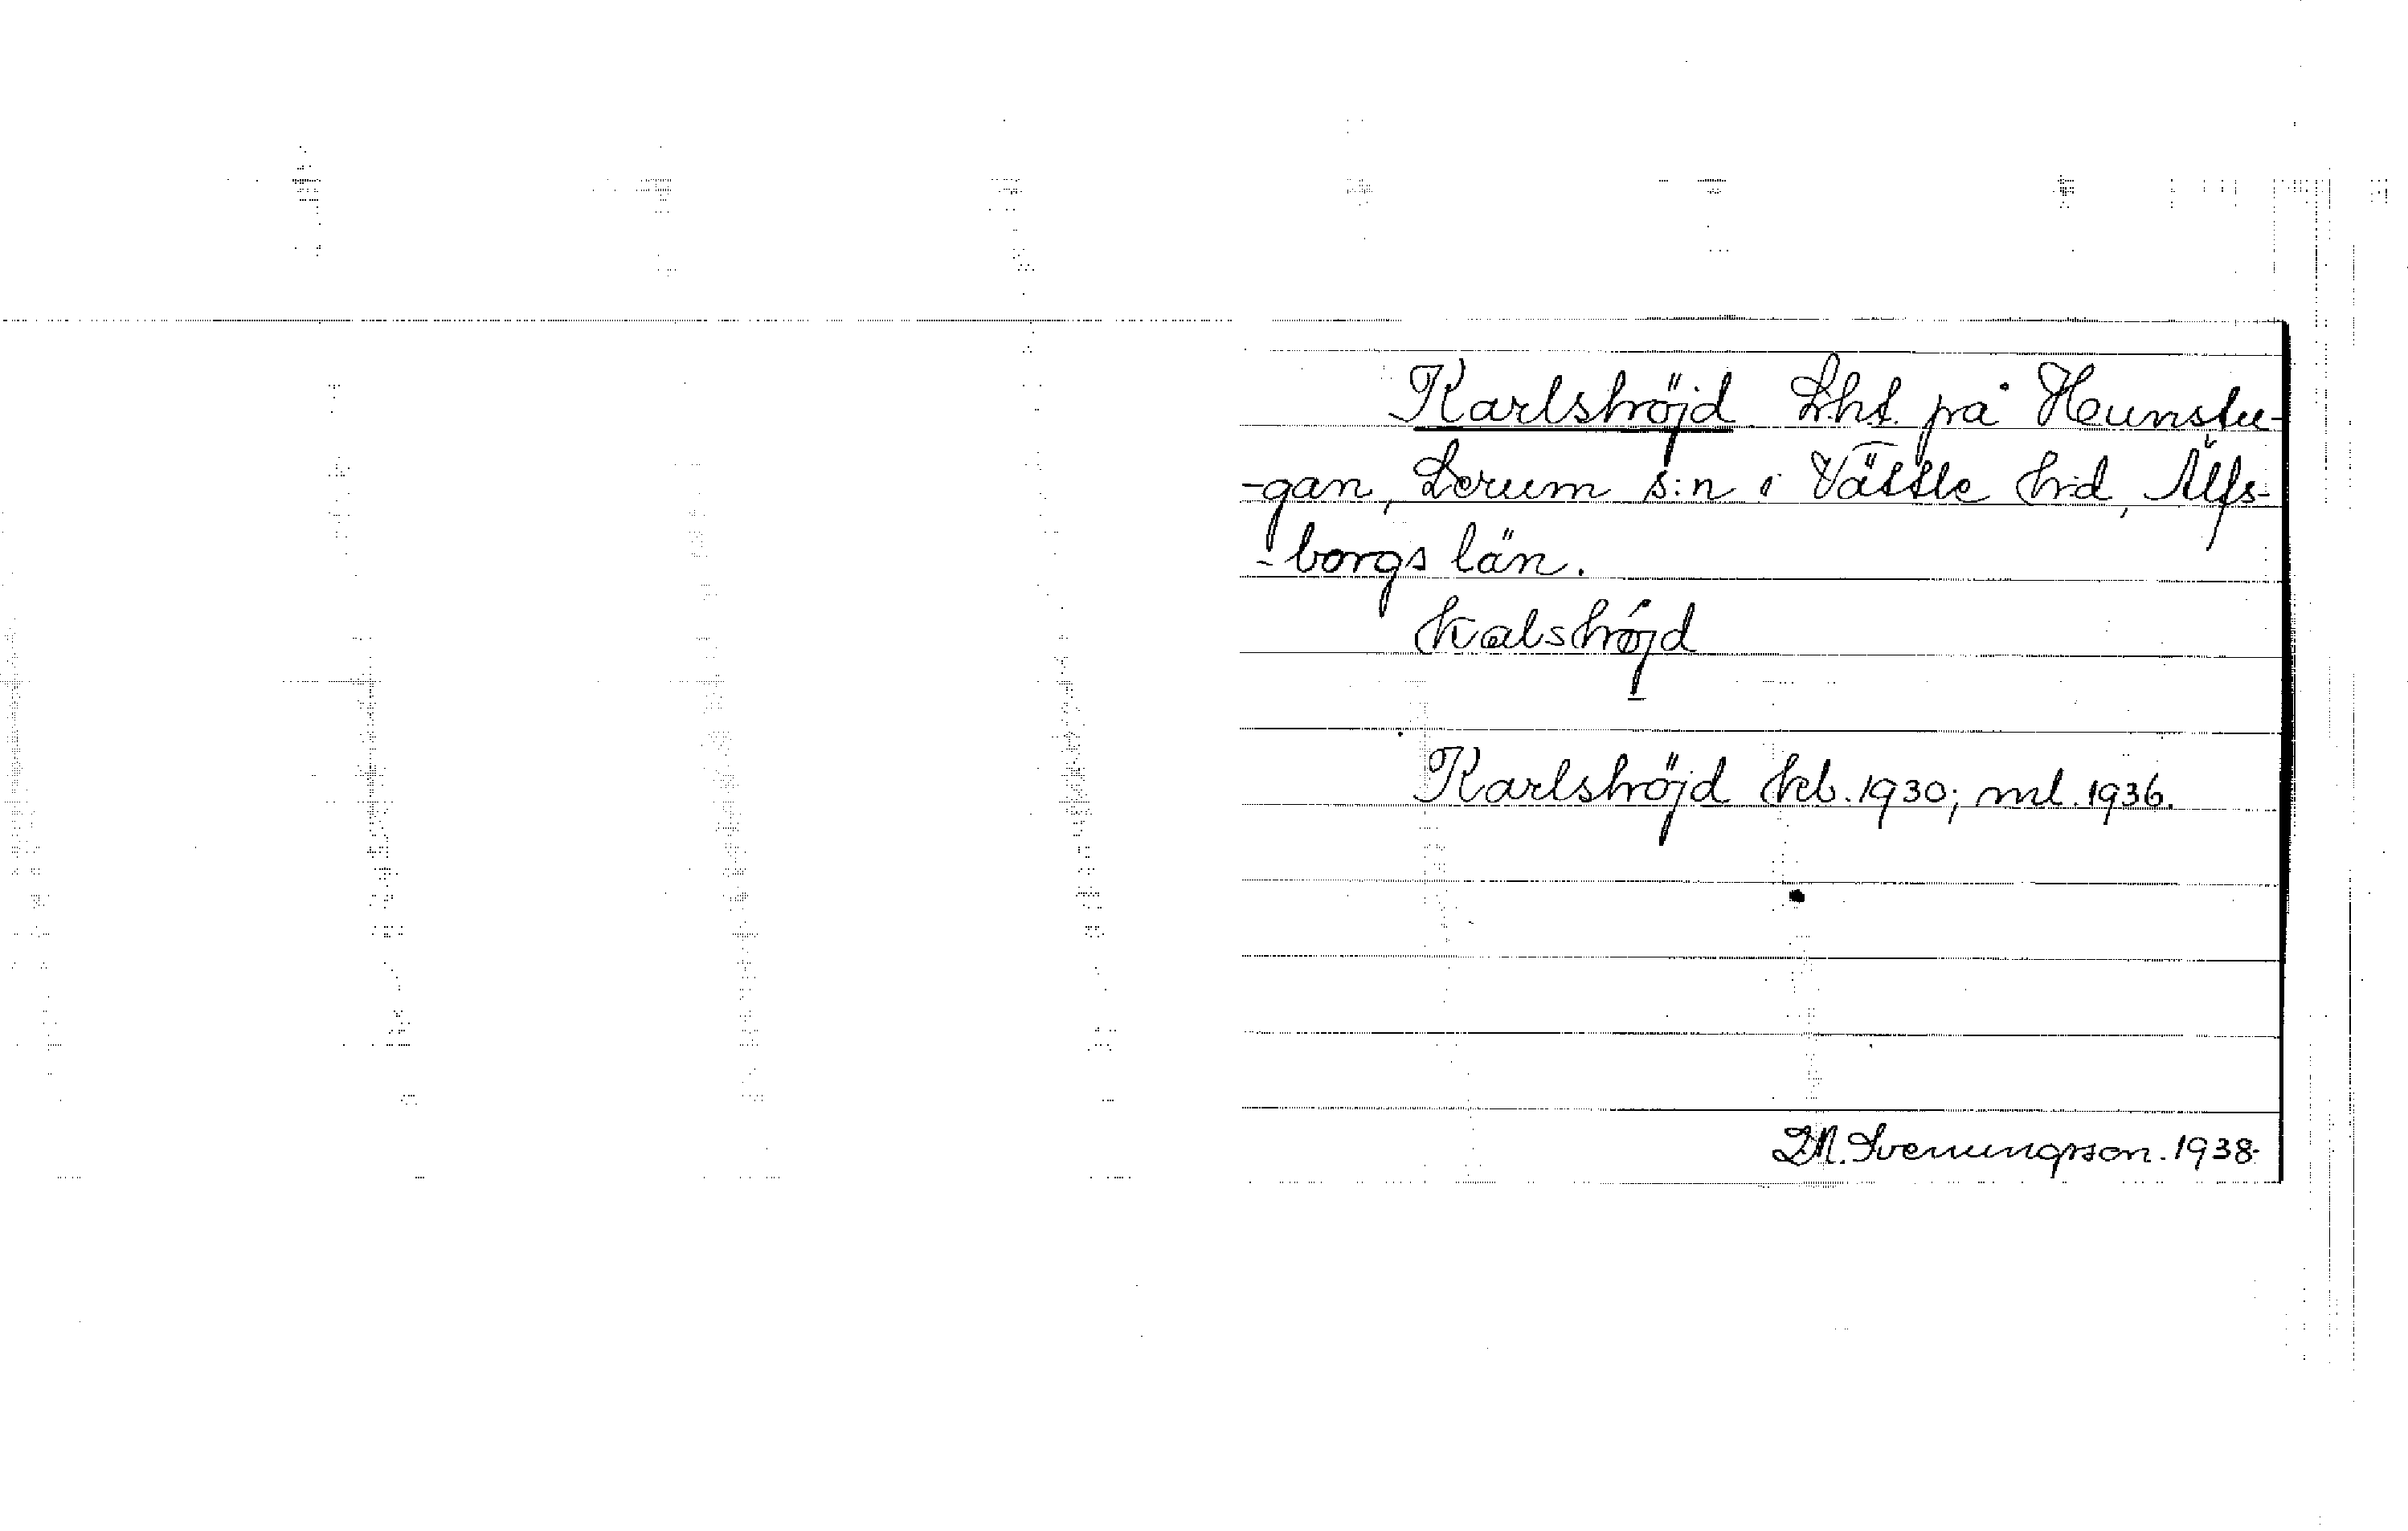 Karlshöjd Lht. på Hunstu-
-gan, Lerum s:n i Vättle h:d, Älfs-
-borgs län.
kalshöjd
Karlshöjd kb. 1930; ml. 1936.
D.N. Svenungsson. 1938.